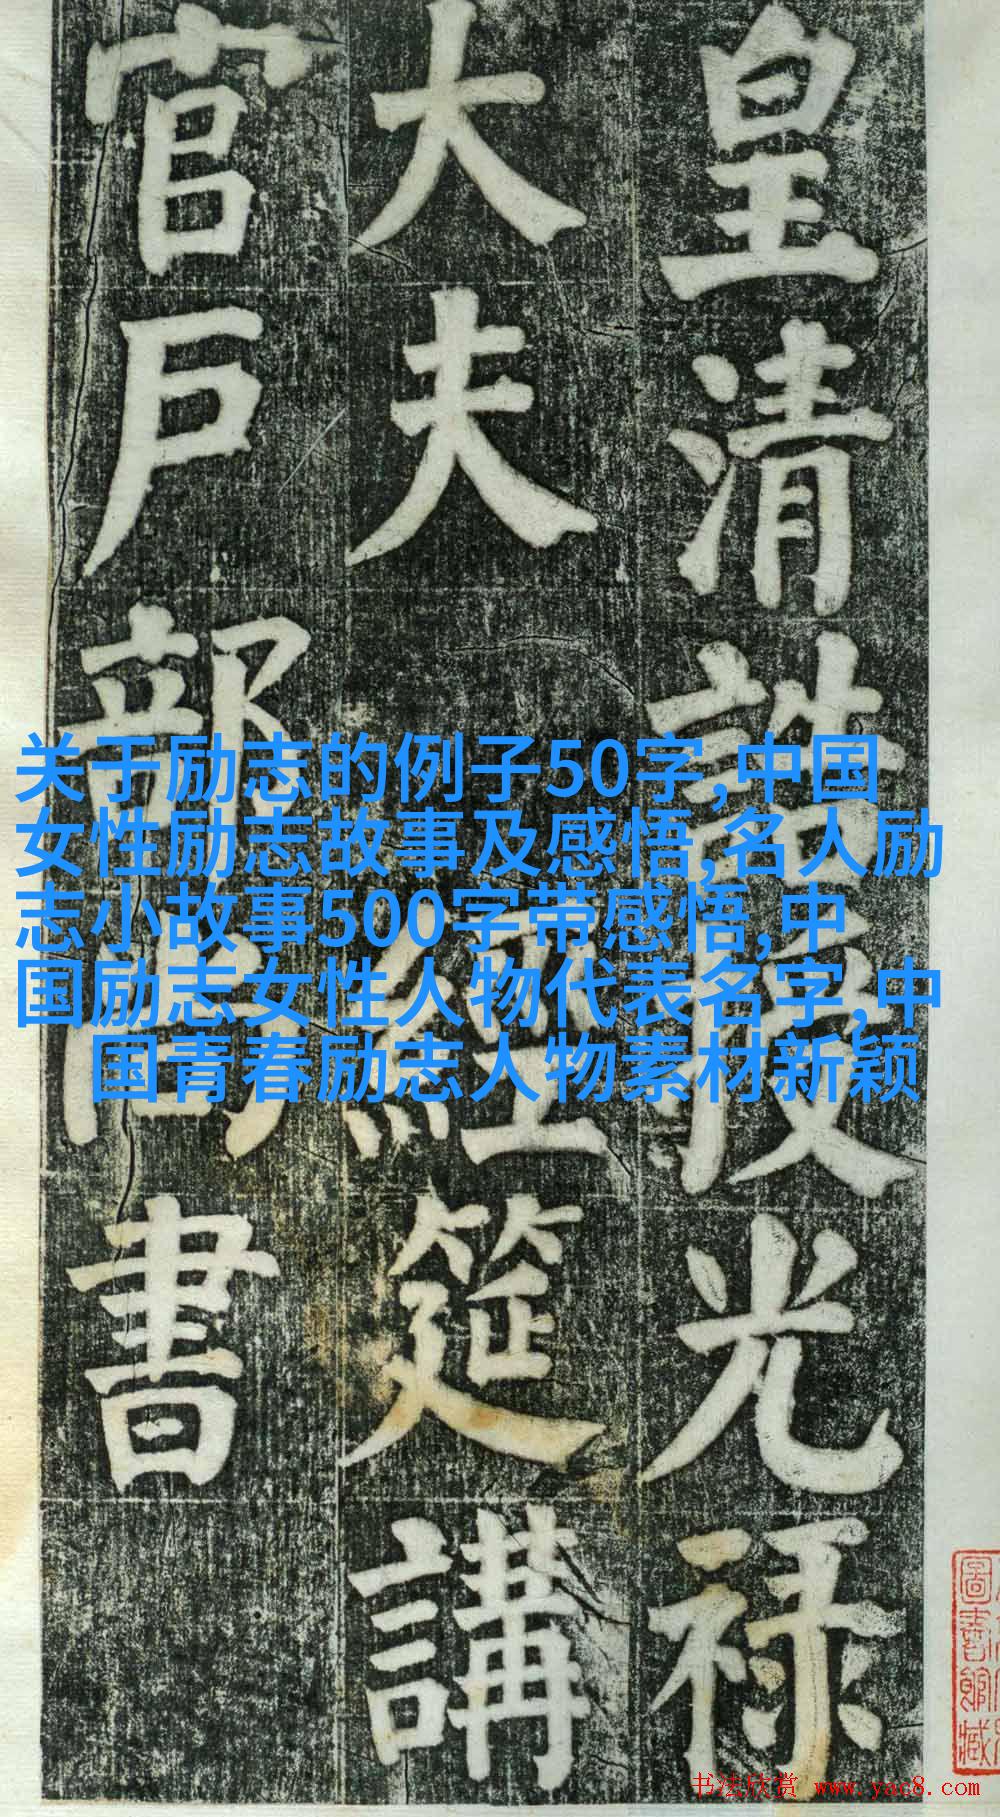 皇清誥授光禄
大夫經筵講
官戶部尚書
关于励志的例子50字,中国
女性励志故事及感悟,名人励
志小故事500字带感悟,中
国励志女性人物代表名字,中
国青春励志人物素材新颖
圖書館藏
书法欣赏 www.yac8.com